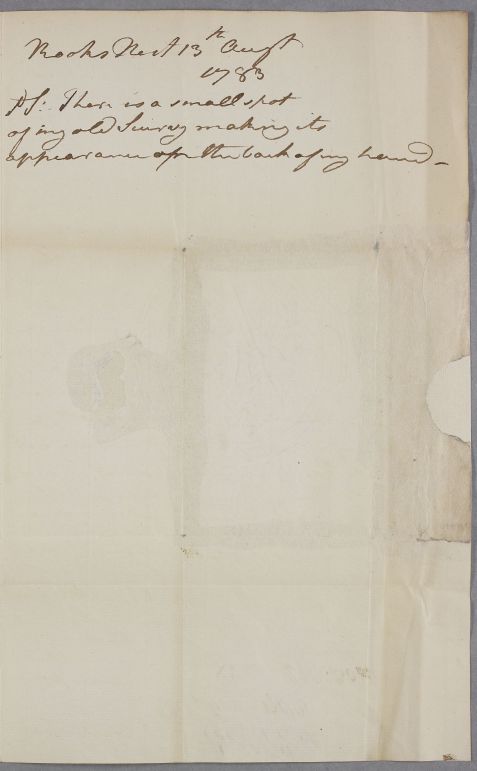 Rooks Nest 13th Augt
1783
PS: There is a small spot
of my old Scurvy making its
appearance on the back of my hand -